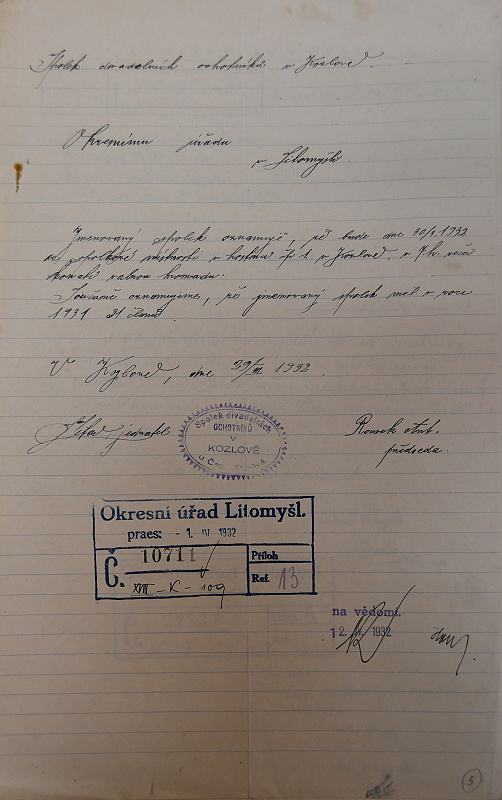 Spolek divadelních ochotníků v Kozlově.
Okresnímu úřadu
v Litomyšli.
Jmenovaný spolek oznamuje, že bude dne 10/4 1932
ve spolkové místnosti v hostinci čp 1. v Kozlově, v 7 h. večer
konati valnou hromadu.
Současně oznamujeme, že jmenovaný spolek měl v roce
1931 21 členů.
V Kozlově, dne 29/III 1932.
jednatel
Spolek divadelních
OCHOTNÍKŮ
V
KOZLOVĚ
Rousek Ant.
předseda.
Okresní úřad Litomyšl.
praes: - 1. IV 1932
Č. 10711
XVIII - K - 109
Příloh
Ref. 13
na vědomí.
12. 1932
5